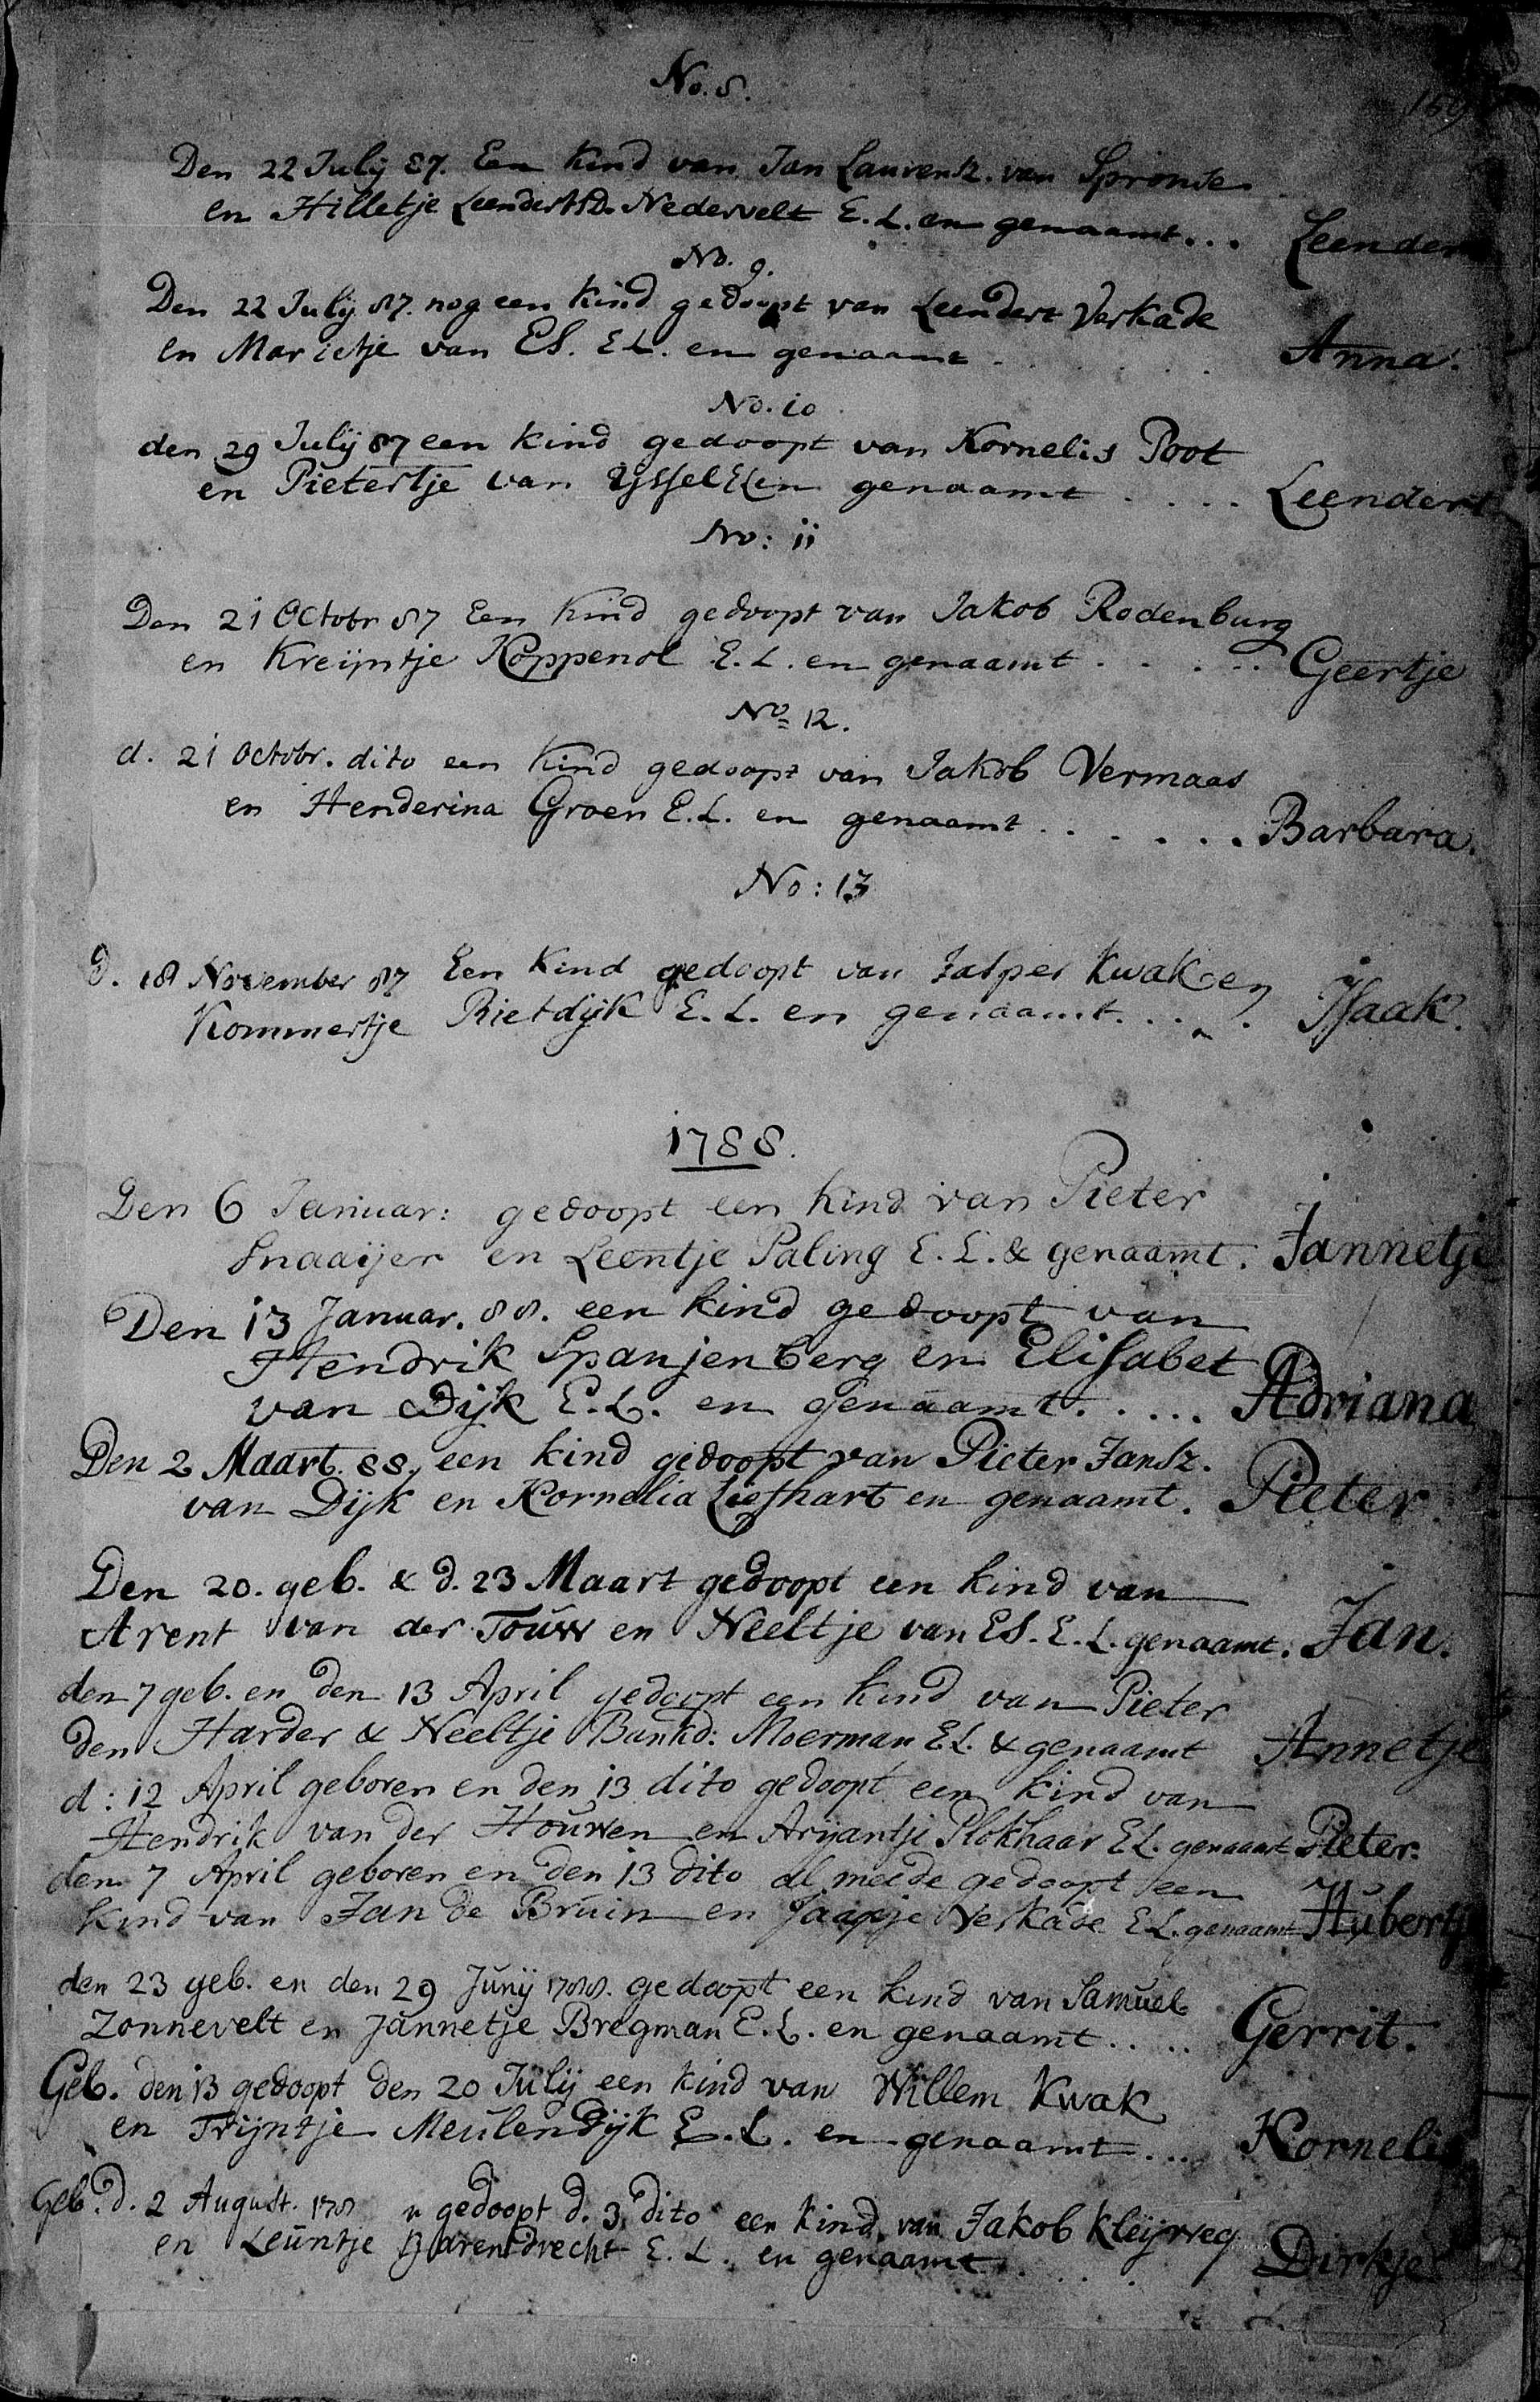 No. 8.
Den 22 Julij 87. Een Kind van Jan Laurensz. van Spronse
en Hilletje Leendertsd. Nedervelt E. L. en genaamt... Leendert
No. 9.
Den 22 Julij 87. nog een Kind gedoopt van Leendert Verkade
en Marietje van ES. E L. en genaamt . . . . . Anna.
No. 10
den 29 Julij 87 een kind gedoopt van Kornelis Poot
en Pietertje van Yssel EL en genaamt . . . . Leendert
No: 11
Den 21 Octobr 87 Een Kind gedoopt van Jakob Rodenburg
en Kreijntje Koppenol E. L. en genaamt . . . . . Geertje
No 12.
d. 21 Octobr. dito een Kind gedoopt van Jakob Vermaas
en Henderina Groen E. L. en genaamt . . . . . . Barbara.
No: 13
d. 18 November 87 Een Kind gedoopt van Jasper Kwak en
Kommertje Rietdijk E. L. en genaamt. . . . . Isaak.
1788.
Den 6 Januar: gedoopt een kind van Pieter
Snaaijer en Leentje Paling E. L. & genaamt. Jannetje
Den 13 Januar. 88. een kind gedoopt van
Hendrik Spanjenberg en Elisabet
van Dijk E. L. en genaamt. . ... Adriana
Den 2 Maart. 88, een kind gedoopt van Pieter Jansz.
van Dijk en Kornelia Liefhart en genaamt. Pieter.
Den 20. geb. & d. 23 Maart gedoopt een kind van
Arent van der Touw en Neeltje van ES. E. L. genaamt. Jan.
den 7 geb. en den 13 April gedoopt een kind van Pieter
den Harder & Neeltje Bankd: Moerman EL. & genaamt Annetje
d: 12 April geboren en den 13 dito gedoopt een kind van
Hendrik van der Houwen en Arijantje Plokhaar EL. genaamt Pieter.
den 7 April geboren en den 13 dito al meede gedoopt een
kind van Jan de Bruin en Jaapje Verkade EL. genaamt Hubertje
den 23 geb. en den 29 Junij 1788. gedoopt een kind van Samuel
Zonnevelt en Jannetje Bregman E. L. en genaamt..... Gerrit.
Geb. den 13 gedoopt den 20 Julij een kind van Willem Kwak
en Trijntje Meulendijk E. L. en genaamt.... Kornelis
Geb. d. 2 August. gedoopt d. 3. dito een kind van Jakob Kleijweg
en Leuntje Barendrecht E. L. en genaamt . . . . Dirkje